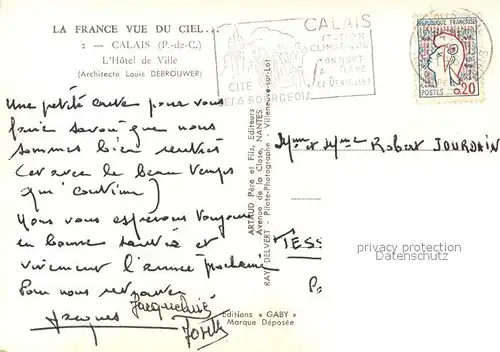 LA FRANCE VUE DU CIEL...
2 — CALAIS (P.-de-C.)
L'Hôtel de Ville
(Architecte Louis DEBROUWER)
CALAIS
STATION
CITE
DES 6 BOURGEOIS
ET DENTELLES
REPUBLIQUE FRANÇAISE
POSTES 0,20
Une petite carte pour vous
faire savoir que nous
sommes bien rentrés
(et avec le beau temps
qui continue)
Nous vous espérons toujours
en bonne santé et
vivement l'année prochaine
Pour nous retrouver
Jacqueline
Jacques
ARTAUD Père et Fils, Editeurs
Avenue de la Close, NANTES
RAY DELVERT - Pilote-Photographe - Villeneuve-sur-Lot
Mr et Mme Robert JOURDAIN
TESS
privacy protection
Datenschutz
Editions « GABY »
Marque Déposée